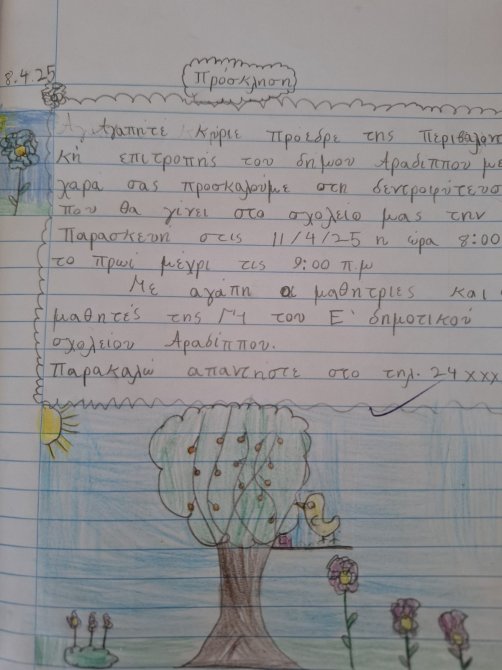 8.4.25
Πρόσκληση
Αγαπητέ Κήριε πρόεδρε της Περιβαλοντ
κή επιτροπής του δήμου Αραδίππου με
χαρα σας προσκαλούμε στη δεντροφύτευσ
που θα γίνει στο σχολείο μας την
Παρασκευή στις 11/4/25 η ώρα 8:00
το πρωί μέχρι τις 9:00 π.μ
Με αγάπη οι μαθήτριες και
μαθητές της Γ'4 του Ε' δημοτικού
σχολείου Αραδίππου.
Παρακαλώ απαντήστε στο τηλ. 24xxx